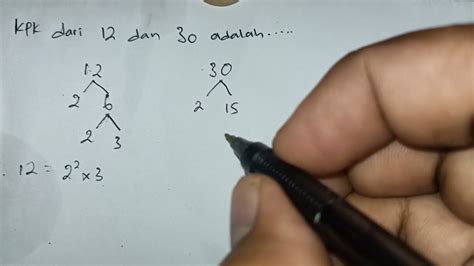 KPK dari 12 dan 30 adalah.....
12 30
2 6 2 15
2 3
12 = 2² × 3